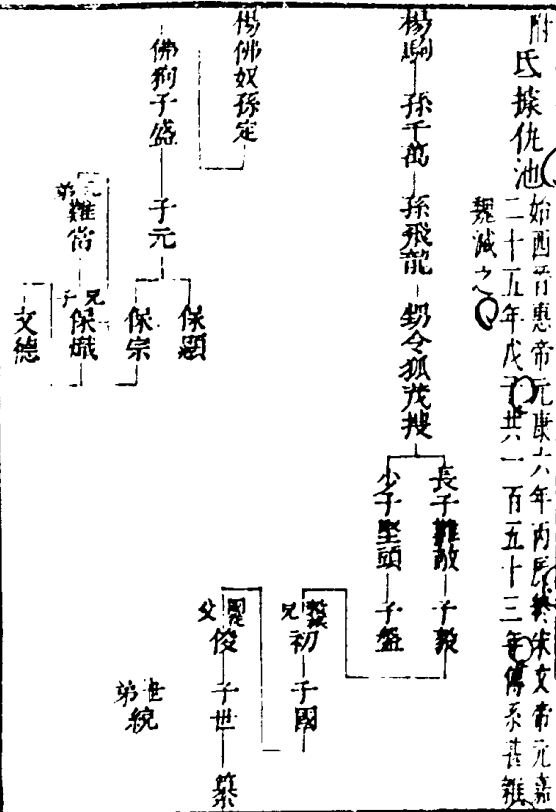 附
氐㨿仇池
始西晉惠帝元康六年丙辰終宋文帝元嘉
二十五年戊子共一百五十三年傳系甚雜
魏滅之
楊駒 孫千萬 孫飛龍 甥令狐茂搜
長子難敵 子毅
少子堅頭 子盤
毅族兄 初 子國
國從父 俊 子世 纂
世弟 統
楊佛奴孫定
佛狗子盛 子元
保顯
保宗
元弟 難當
兄子 保熾
文德